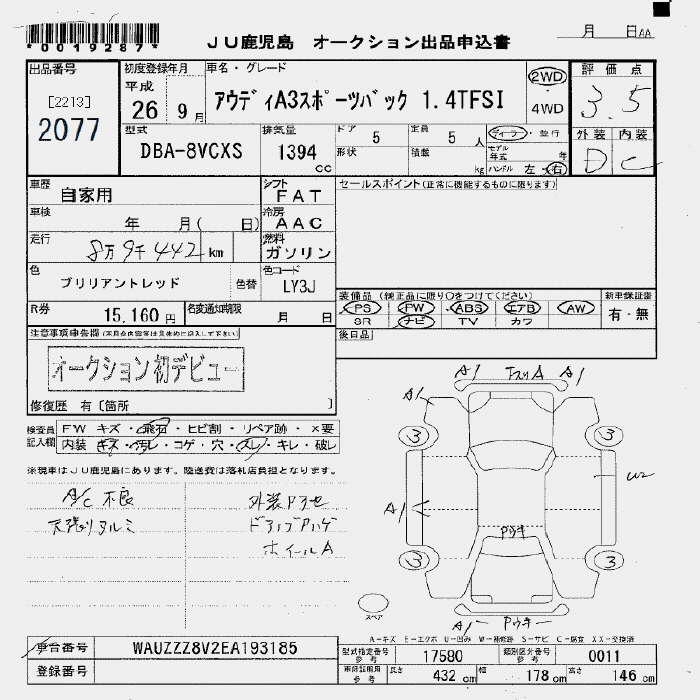 *00192877*
JU鹿児島 オークション出品申込書
月 日AA
出品番号
[2213]
2077
初度登録年月
平成
26 9月
車名・グレード
アウディA3スポーツバック 1.4TFSI
2WD
・
4WD
評価点
3.5
外装 内装
D C
型式
DBA-8VCXS
排気量
1394
cc
ドア 5
定員 5 人
形状
積載 kg
ディーラ・並行
モデル年式 年
ハンドル 左・右
車歴 自家用
シフト FAT
セールスポイント(正常に機能するものに限ります)
車検 年 月( 日)
冷房 AAC
走行 8万9千442 km
燃料 ガソリン
色 ブリリアントレッド 色替
色コード LY3J
R券 15,160円
名変通知期限 月 日
装備品(純正品に限り○をつけてください)
PS PW ABS エアB AW
SR ナビ TV カワ
新車保証書
有・無
後日品
注意事項申告欄(不具合内容等は具体的に記入して下さい)
オークション初デビュー
修復歴 有〔箇所 〕
検査員記入欄
FW キズ・飛石・ヒビ割・リペア跡・×要
内装 キズ・汚レ・コゲ・穴・スレ・キレ・破レ
※現車はJU鹿児島にあります。陸送費は落札店負担となります。
A/C不良
天張りタルミ
外装
ホイールA
A1 A1
A1
3 3
A1
W2
Pウキ
3 3
スペア
A1 Pウキ
A-キズ E-エクボ U-凹み W-補修跡 S-サビ C-腐食 XX-交換済
車台番号 WAUZZZ8V2EA193185
登録番号
型式指定番号 参考 17580
類別区分番号 参考 0011
車検証数用 参考 長さ 432 cm 幅 178 cm 高さ 146 cm